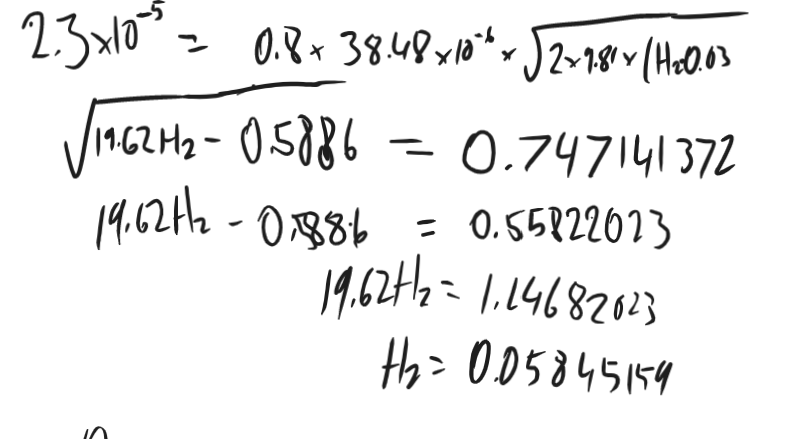 2.3×10⁻⁵ = 0.8 × 38.48 ×10⁻⁶ × √2×9.81×(H₂-0.03
√19.62H₂ - 0.5886 = 0.747141372
19.62H₂ - 0.5886 = 0.55822023
19.62H₂ = 1.14682023
H₂ = 0.05845159